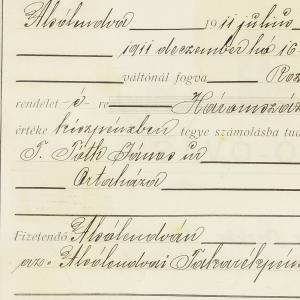 Alsólendva 1911 julius
1911 deczember hó 16
váltónál fogva
rendelet -é- re Háromszáz
értéke készpénzben tegye számolásba tud
T. Tóth János ur
Ortaháza
Fizetendő Alsólendván
az Alsólendvai Takarékpén